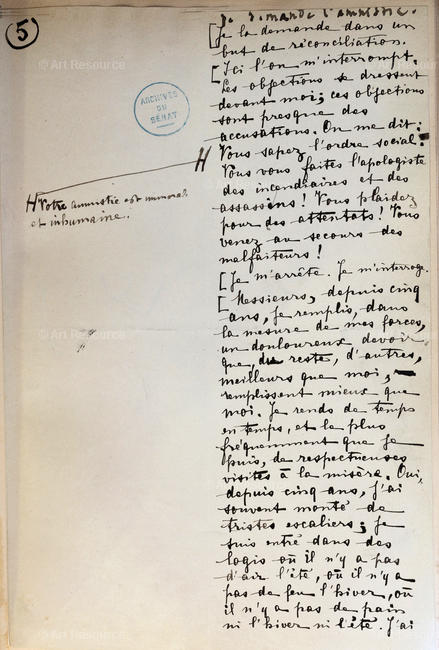 5
Je demande l'amnistie.
[Je la demande dans un
but de réconciliation.
[Ici l'on m'interrompt.
Les objections se dressent
devant moi ; ces objections
sont presque des
accusations. On me dit :
H Vous sapez l'ordre social !
Vous vous faites l'apologiste
des incendiaires et des
assassins ! Vous plaidez
pour des attentats ! Vous
venez au secours des
malfaiteurs !
[Je m'arrête. Je m'interroge.
[Messieurs, depuis cinq
ans, je remplis, dans
la mesure de mes forces,
un douloureux devoir
que, du reste, d'autres,
meilleurs que moi,
remplissent mieux que
moi. Je rends de temps
en temps, et le plus
fréquemment que je
puis, de respectueuses
visites à la misère. Oui,
depuis cinq ans, j'ai
souvent monté de
tristes escaliers ; je
suis entré dans des
logis où il n'y a pas
d'air l'été, où il n'y a
pas de feu l'hiver, où
il n'y a pas de pain
ni l'hiver ni l'été. J'ai
H Votre amnistie est immorale
et inhumaine.
ARCHIVES
DU
SÉNAT
© Art Resource
© Art Resource
© Art Resource
© Art Resource
© Art Resource
© Art Resource